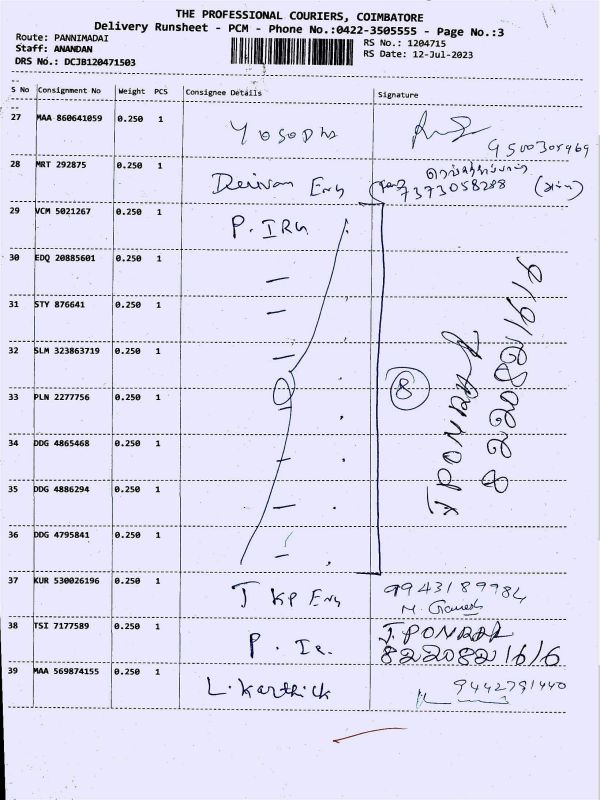 THE PROFESSIONAL COURIERS, COIMBATORE
Delivery Runsheet - PCM - Phone No.:0422-3505555 - Page No.:3
Route: PANNIMADAI
Staff: ANANDAN
DRS No.: DCJB120471503
RS No.: 1204715
RS Date: 12-Jul-2023
S No Consignment No Weight PCS Consignee Details Signature
27 MAA 860641059 0.250 1 Yosodha
28 MRT 292875 0.250 1 Deivam Eng 7373058288
29 VCM 5021267 0.250 1 P. IRN
30 EDQ 20885601 0.250 1
31 STY 876641 0.250 1
32 SLM 323863719 0.250 1
33 PLN 2277756 0.250 1 8
34 DDG 4865468 0.250 1
35 DDG 4886294 0.250 1
36 DDG 4795841 0.250 1
J PONRAJ
8220821616
37 KUR 530026196 0.250 1 J KP Eng 9943189984
M. Ganesh
38 TSI 7177589 0.250 1 P. Ir. J.PONRAJ
8220821616
39 MAA 569874155 0.250 1 L. Karthick 9442791440